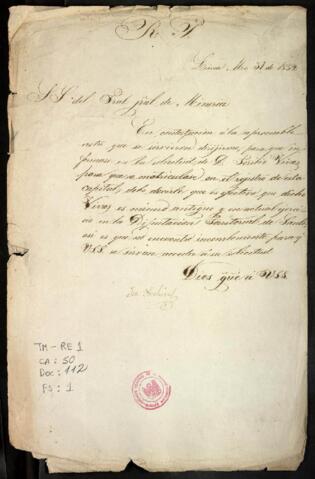 R. P.
Lima, Mzo 31 de 1852
S.S. del Tral. pral. de Minería
En contestación á la apreciable
nota que se sirvieron dirijirme, para que in-
forme en la solicitud de D. Vivas
para matricularse en el registro de esta
capital, debo decirles que es notorio que dicho
Vivas es minero antiguo y en actual ejerci-
cio en la Diputación Territorial de
asi es que no encuentro inconveniente para q.
USS. se sirvan acceder á su solicitud
Dios gue á USS.
TM - RE 1
CA : 50
DOC : 112
FS : 1